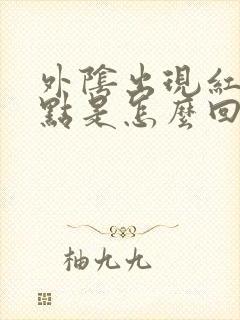 外陰出現紅
點是怎麼回
柚九九